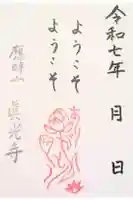 令和七年 月 日
ようこそ
ようこそ
真光寺